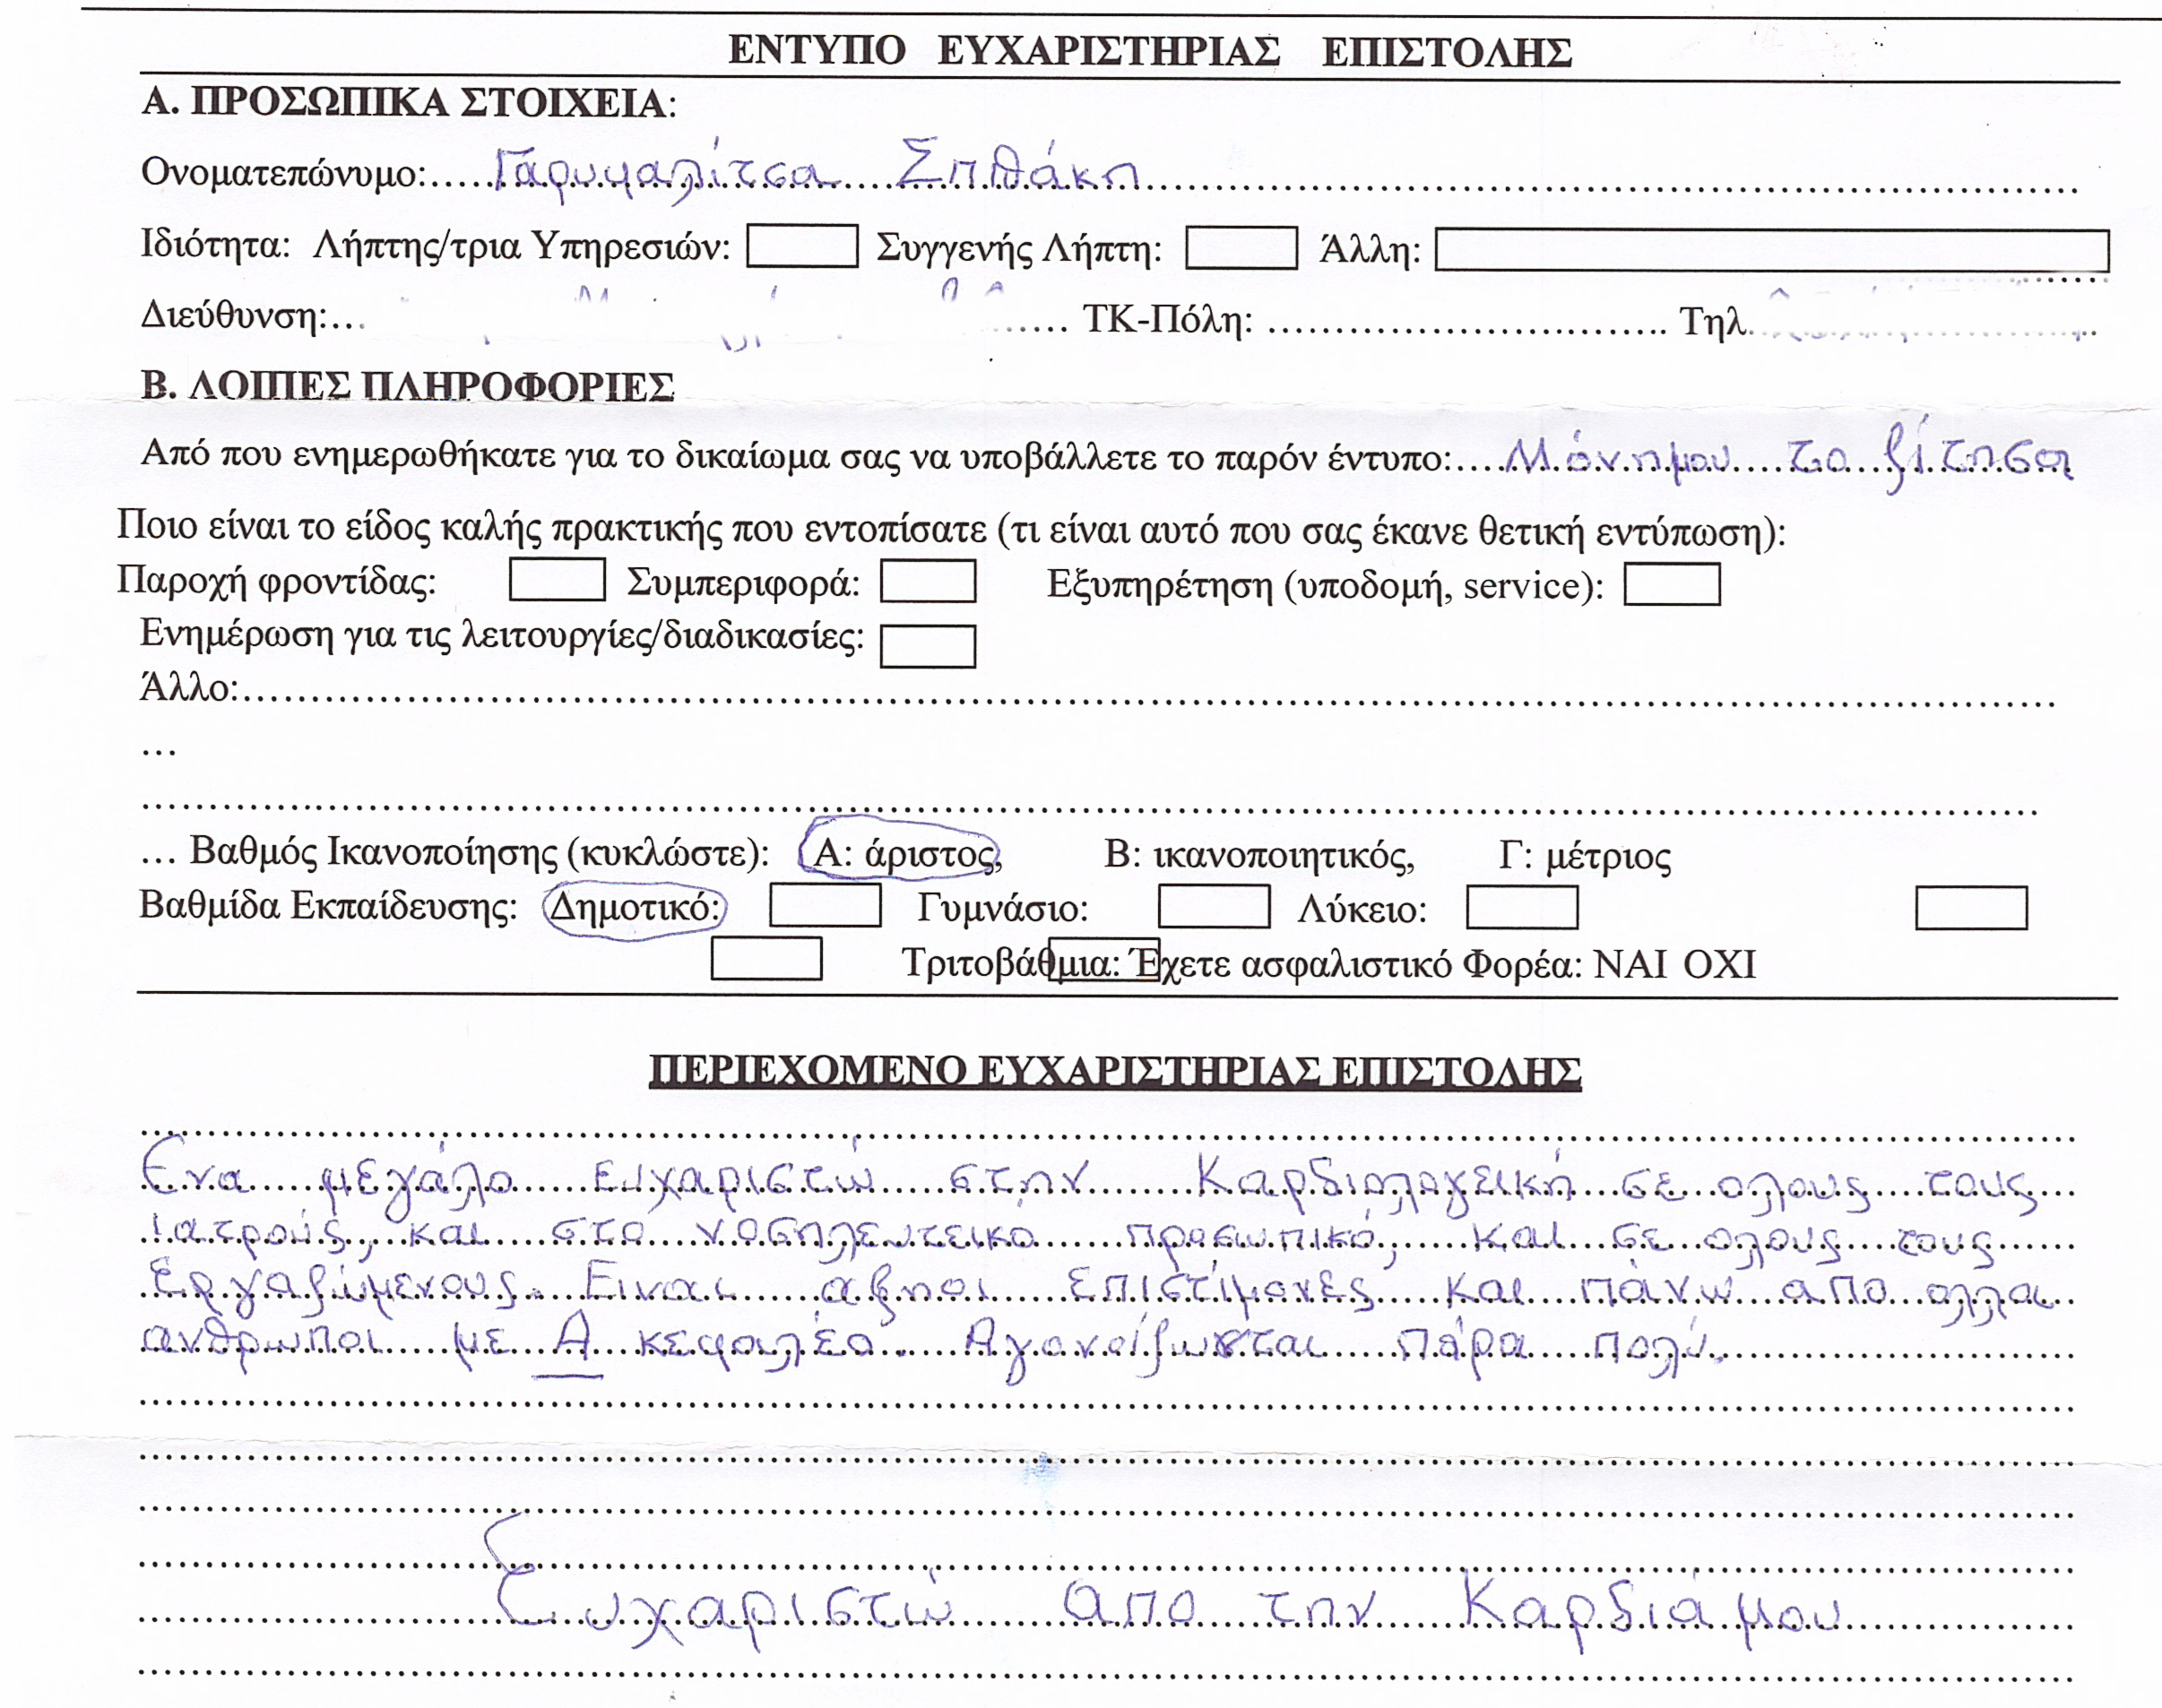 ΕΝΤΥΠΟ ΕΥΧΑΡΙΣΤΗΡΙΑΣ ΕΠΙΣΤΟΛΗΣ
Α. ΠΡΟΣΩΠΙΚΑ ΣΤΟΙΧΕΙΑ:
Ονοματεπώνυμο:..... Γαρυφαλίτσα Σπιθάκη
Ιδιότητα: Λήπτης/τρια Υπηρεσιών: Συγγενής Λήπτη: Άλλη:
Διεύθυνση:... ...... ΤΚ-Πόλη: .............................. Τηλ.
Β. ΛΟΙΠΕΣ ΠΛΗΡΟΦΟΡΙΕΣ
Από που ενημερωθήκατε για το δικαίωμα σας να υποβάλλετε το παρόν έντυπο:.... Μόνημου το ζίτησα
Ποιο είναι το είδος καλής πρακτικής που εντοπίσατε (τι είναι αυτό που σας έκανε θετική εντύπωση):
Παροχή φροντίδας: Συμπεριφορά: Εξυπηρέτηση (υποδομή, service):
Ενημέρωση για τις λειτουργίες/διαδικασίες:
Άλλο:
...
... Βαθμός Ικανοποίησης (κυκλώστε): Α: άριστος, Β: ικανοποιητικός, Γ: μέτριος
Βαθμίδα Εκπαίδευσης: Δημοτικό: Γυμνάσιο: Λύκειο:
Τριτοβάθμια: Έχετε ασφαλιστικό Φορέα: ΝΑΙ ΟΧΙ
ΠΕΡΙΕΧΟΜΕΝΟ ΕΥΧΑΡΙΣΤΗΡΙΑΣ ΕΠΙΣΤΟΛΗΣ
Ενα μεγάλο ευχαριστώ στην Καρδιολογεική σε ολους τους
ιατρούς, και στο νοσηλευτεικό προσωπικό, και σε ολους τους
Εργαζώμενους. Ειναι αξηοι επιστίμονες και πάνω απο ολλα
ανθρωποι με Α κεφαλέο. Αγονοίζωνται πάρα πολύ.
Ευχαριστώ απο την Καρδιά μου